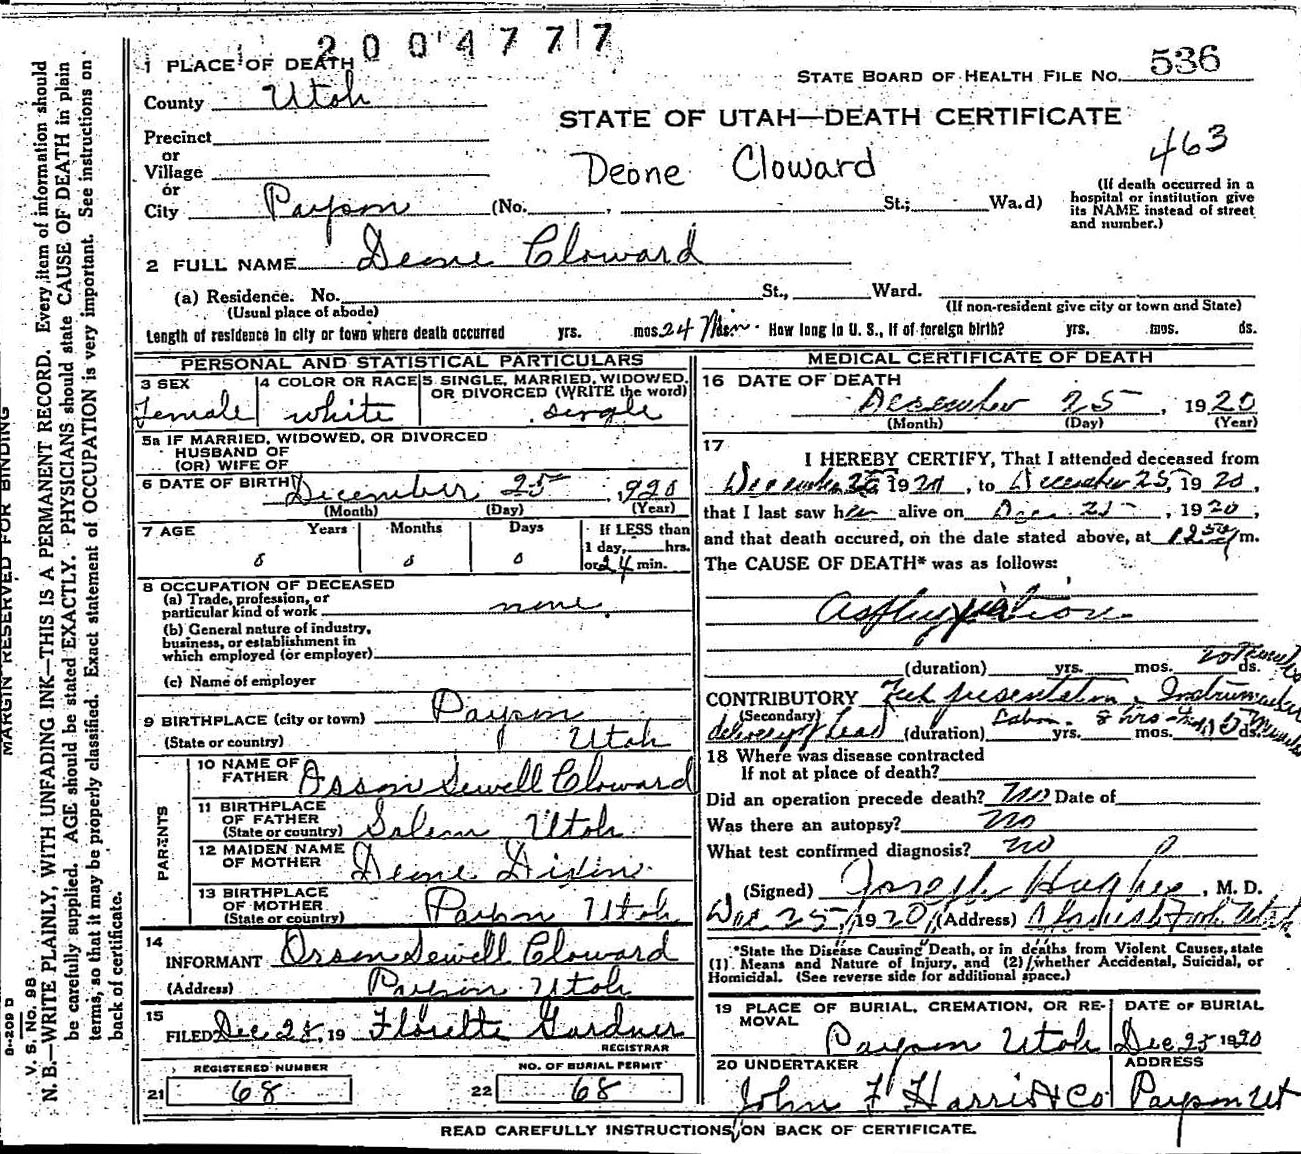 2004777
1 PLACE OF DEATH
STATE BOARD OF HEALTH FILE NO. 536
County Utah
STATE OF UTAH—DEATH CERTIFICATE
463
Precinct
or
Village
or
City Payson (No. , St.; Ward)
Deone Cloward
(If death occurred in a
hospital or institution give
its NAME instead of street
and number.)
2 FULL NAME Deone Cloward
(a) Residence. No. St., Ward.
(Usual place of abode) (If non-resident give city or town and State)
Length of residence in city or town where death occurred yrs. mos. 24 Min. How long in U. S., if of foreign birth? yrs. mos. ds.
PERSONAL AND STATISTICAL PARTICULARS
3 SEX Female
4 COLOR OR RACE white
5 SINGLE, MARRIED, WIDOWED,
OR DIVORCED (WRITE the word)
single
5a IF MARRIED, WIDOWED, OR DIVORCED
HUSBAND OF
(OR) WIFE OF
6 DATE OF BIRTH December 25, 1920
(Month) (Day) (Year)
7 AGE Years Months Days If LESS than
1 day, hrs.
0 0 0 or 24 min.
8 OCCUPATION OF DECEASED
(a) Trade, profession, or
particular kind of work none
(b) General nature of industry,
business, or establishment in
which employed (or employer)
(c) Name of employer
9 BIRTHPLACE (city or town) Payson
(State or country) Utah
PARENTS
10 NAME OF
FATHER Orson Sewell Cloward
11 BIRTHPLACE
OF FATHER
(State or country) Salem Utah
12 MAIDEN NAME
OF MOTHER Deone Dixon
13 BIRTHPLACE
OF MOTHER
(State or country) Payson Utah
14
INFORMANT Orson Sewell Cloward
(Address) Payson Utah
15
FILED Dec 25, 19 Florette Gardner
REGISTRAR
REGISTERED NUMBER
21 68
NO. OF BURIAL PERMIT
22 68
MEDICAL CERTIFICATE OF DEATH
16 DATE OF DEATH
December 25, 1920
(Month) (Day) (Year)
17
I HEREBY CERTIFY, That I attended deceased from
December 25 1920, to December 25, 1920,
that I last saw her alive on Dec. 25, 1920,
and that death occured, on the date stated above, at m.
The CAUSE OF DEATH* was as follows:
Asphyxiation
(duration) yrs. mos. ds.
CONTRIBUTORY presentation. Instrumental
(Secondary)
delivery of head (duration) Labor 8 hrs yrs. mos. ds.
18 Where was disease contracted
If not at place of death?
Did an operation precede death? no Date of
Was there an autopsy? no
What test confirmed diagnosis? no
(Signed) Joseph Hughes, M. D.
Dec 25, 1920, (Address) Utah
*State the Disease Causing Death, or in deaths from Violent Causes, state
(1) Means and Nature of Injury, and (2) whether Accidental, Suicidal, or
Homicidal. (See reverse side for additional space.)
19 PLACE OF BURIAL, CREMATION, OR RE-
MOVAL
Payson Utah
DATE OF BURIAL
Dec 25 1920
20 UNDERTAKER
John F Harris & Co
ADDRESS
Payson Ut
READ CAREFULLY INSTRUCTIONS ON BACK OF CERTIFICATE.
MARGIN RESERVED FOR BINDING
V. S. No. 98
N. B.—WRITE PLAINLY, WITH UNFADING INK—THIS IS A PERMANENT RECORD. Every item of information should
be carefully supplied. AGE should be stated EXACTLY. PHYSICIANS should state CAUSE OF DEATH in plain
terms, so that it may be properly classified. Exact statement of OCCUPATION is very important. See instructions on
back of certificate.